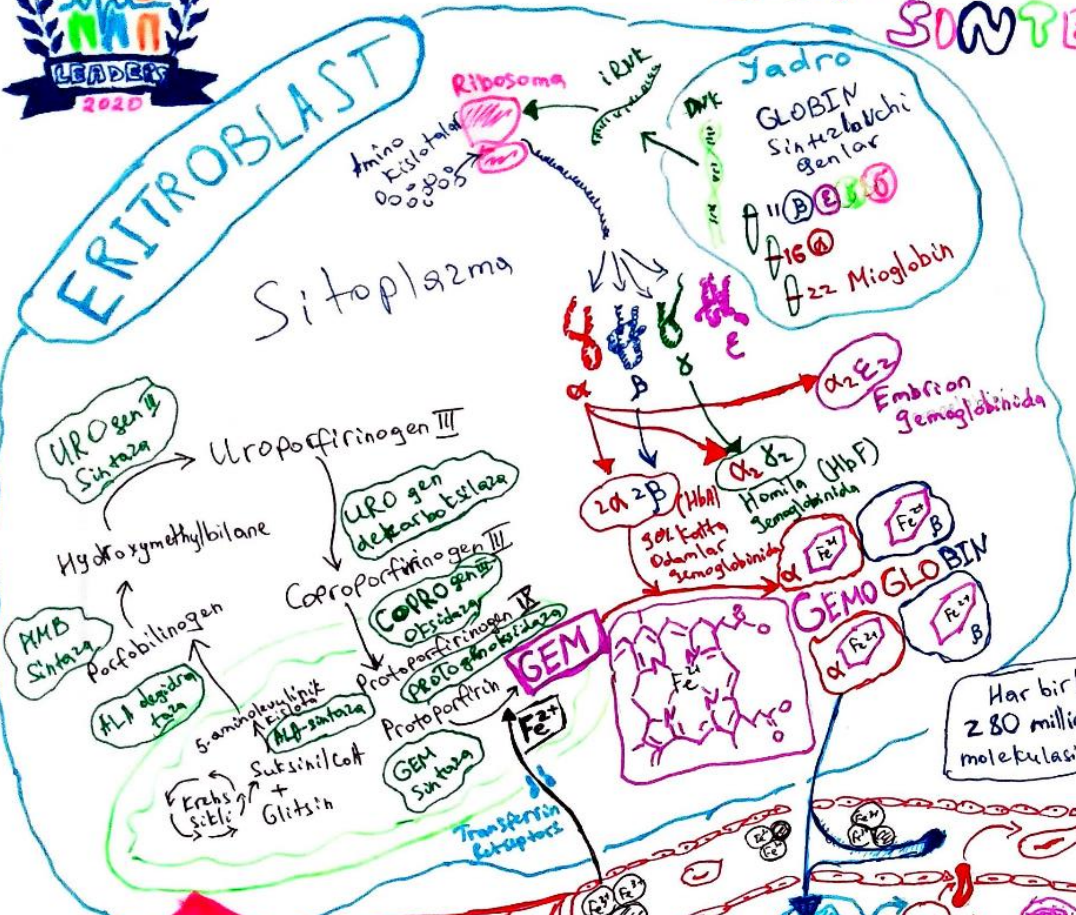 LEADERS
2020
SINTE
ERITROBLAST
Ribosoma
iRNK
Amino
kislotalar
Yadro
DNK
GLOBIN
Sintezlovchi
genlar
11 β ε γ δ
16 α
22 Mioglobin
Sitoplazma
α
β
γ
ε
α2 ε2
Embrion
gemoglobinida
2α 2β (HbA)
90% katta
odamlar
gemoglobinida
α2 γ2 (HbF)
Homila
gemoglobinida
URO gen III
Sintaza
Uroporfirinogen III
URO gen
dekarboksilaza
Hydroxymethylbilane
Coproporfirinogen III
COPRO gen III
OFsidaza
HMB
Sintaza
Porfobilinogen
Protoporfirinogen IX
PROTOgenoksidaza
ALA degidra
taza
5-aminolevulinik
kislota
ALA-sintaza
Protoporfirin
GEM
Fe2+
GEM
Sintaza
Suksinil CoA
+
Glitsin
Krebs
sikli
Transferrin
Retseptors
N
N
N
N
Fe2+
O
O
O
O
GEMOGLOBIN
α Fe2+
Fe2+ β
α Fe2+
Fe2+ β
Har bir
280 millio
molekulasi
Fe3+
Fe3+